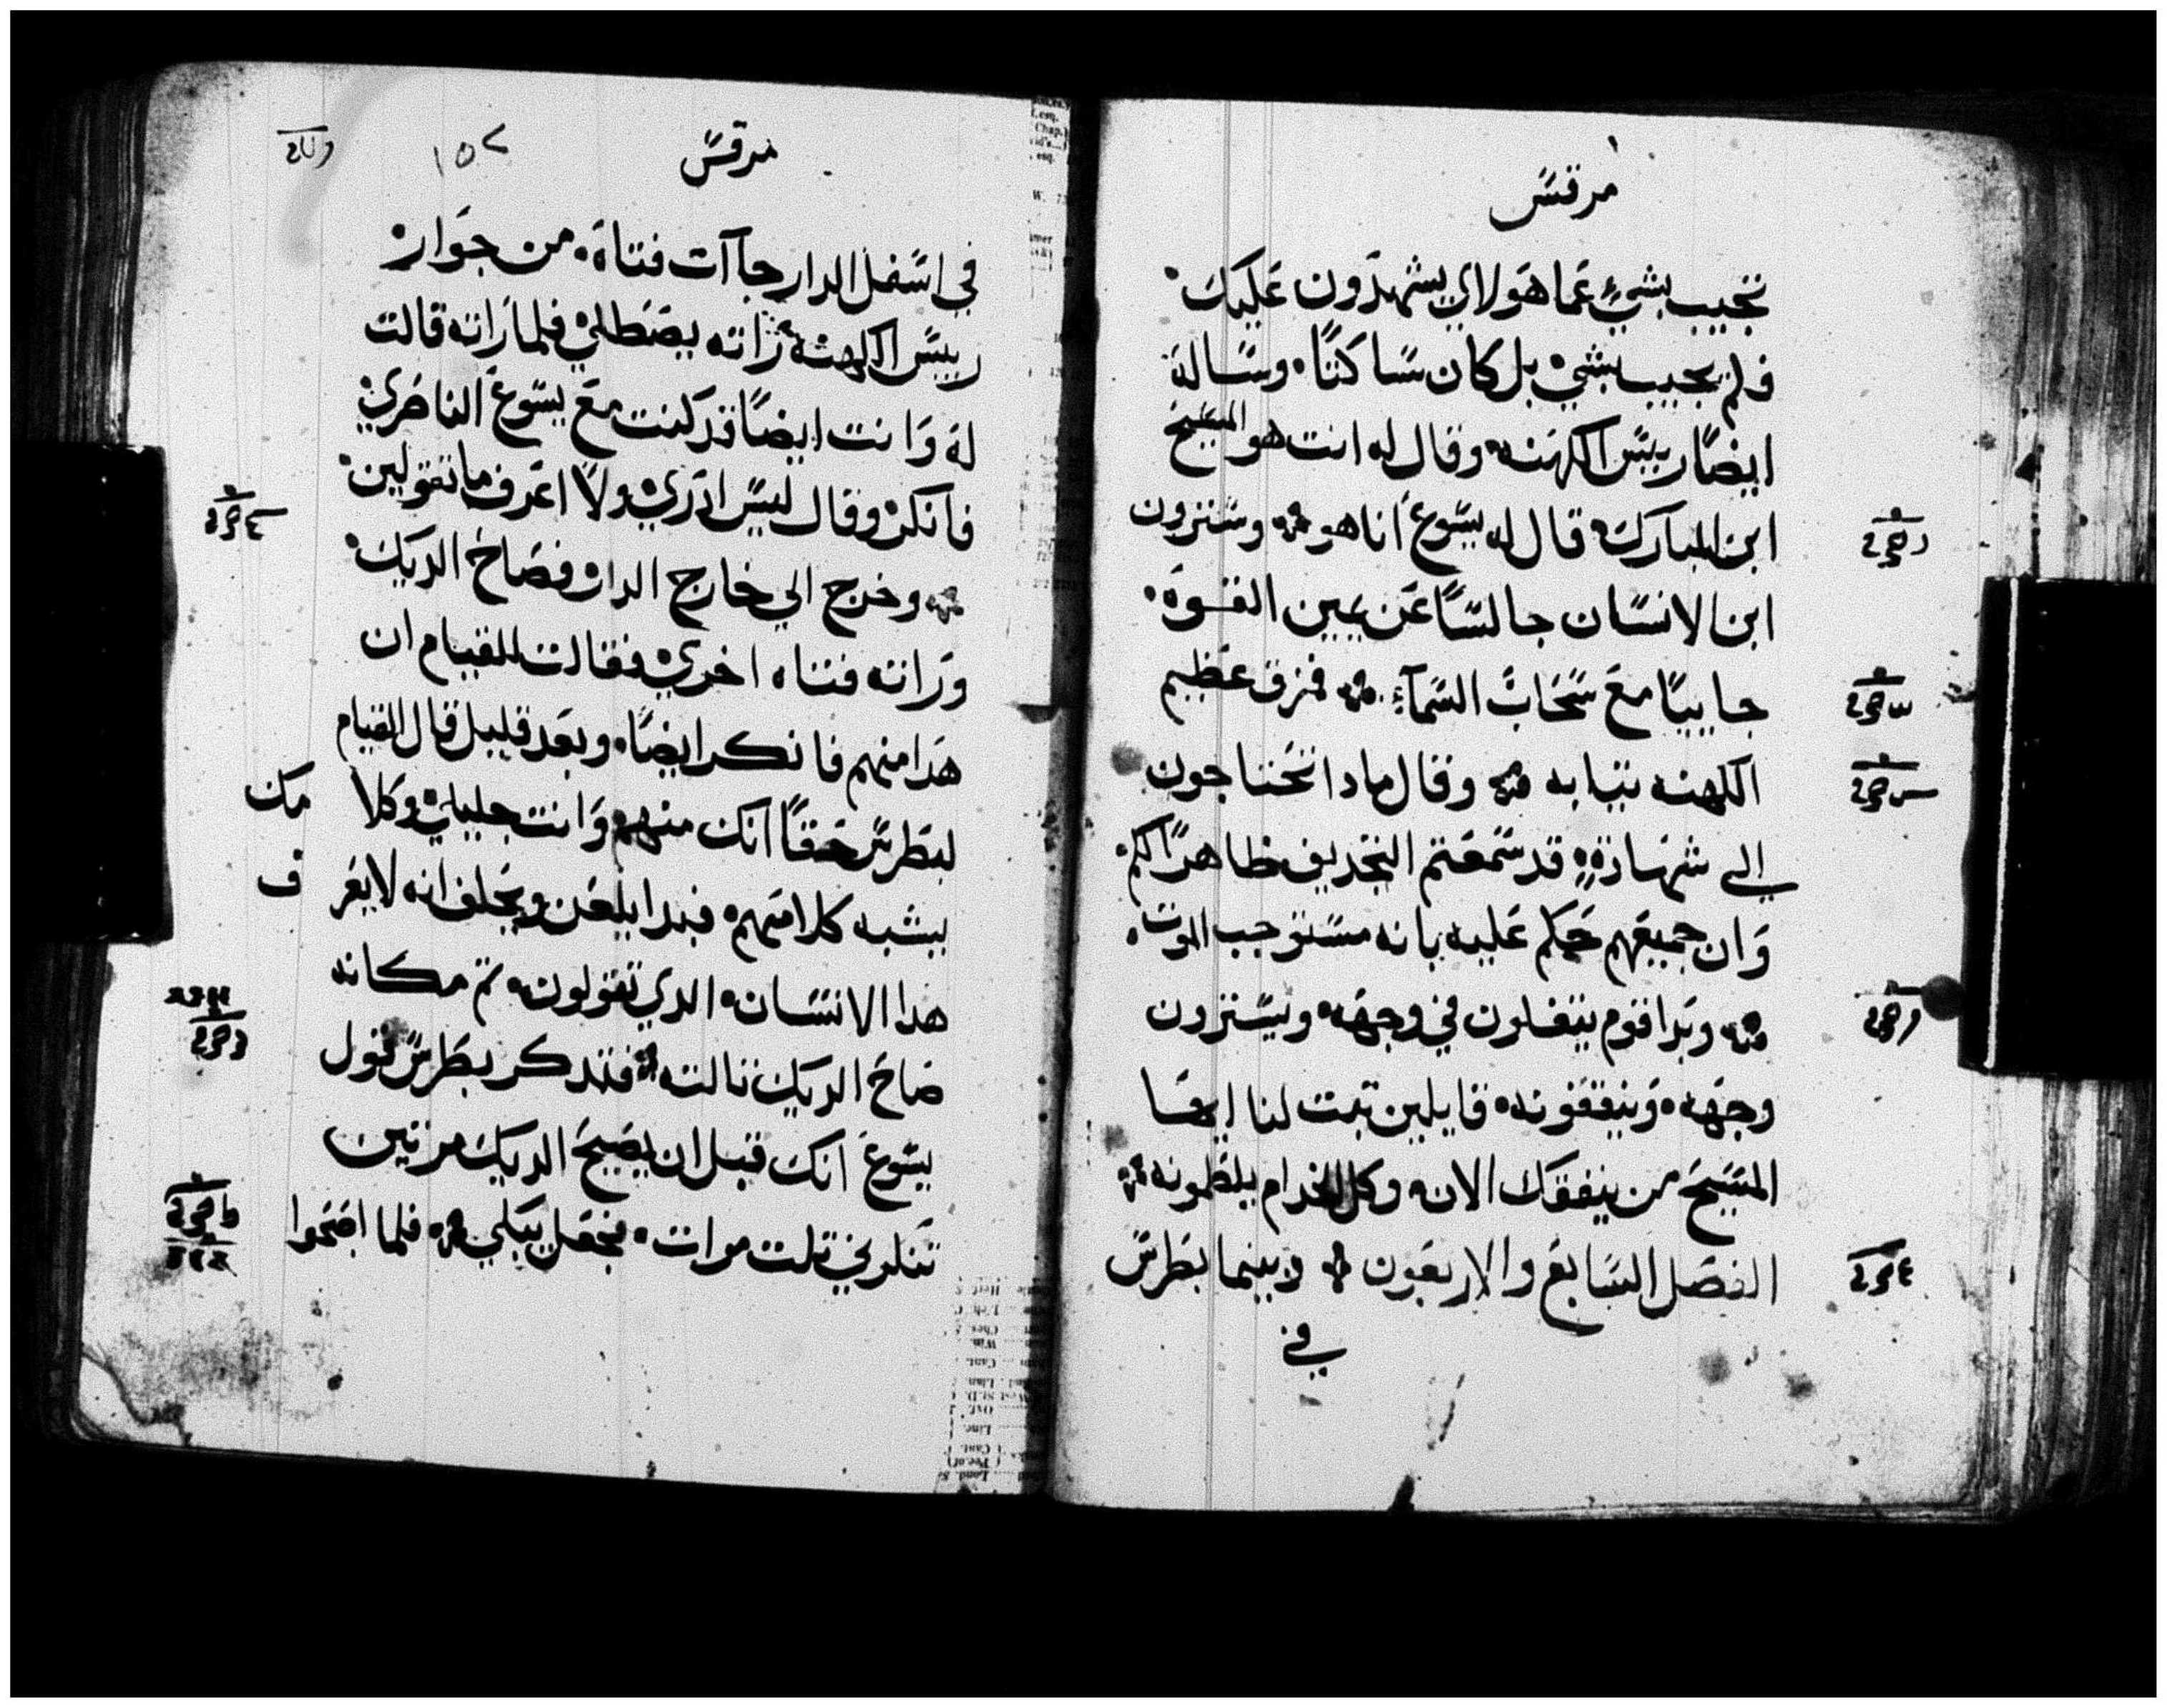 مرقس
تجيب بشيء عما هولاي يشهدون عليك
فلم يجيب بشي بل كان ساكتا وساله
ايضا رييس الكهنه وقال له انت هو المسيح
ابن المبارك قال له يسوع انا هو وسترون
ابن الانسان جالسا عن يمين القوه
جاييا مع سحاب السمآء فمزق عظيم
الكهنه ثيابه وقال مادا نحتاجون
الي شهادة قد سمعتم التجديف ظاهرا لكم
وان جميعهم حكم عليه بانه مستوجب الموت
وبدا قوم يتفلون في وجهه ويسترون
وجهه وينقفونه قايلين تمت لنا ايها
المسيح من ينفقك الان وكل الخدام يلطمونه
الفصل السابع والاربعون وبينما بطرس
في
مرقس
١٥٢
في اسفل الدار جاآت فتاة من جوار
رييس الكهنة راته يصطلي فلما راته قالت
له وانت ايضا قد كنت مع يسوع الناصري
فانكر وقال ليس ادري ولا اعرف ما تقولين
وخرج الي خارج الدار فصاح الديك
وراته فتاه اخري فقالت للقيام ان
هدا منهم فانكر ايضا وبعد قليل قال القيام
لبطرس حقا انك منهم وانت جليلي وكلامك
يشبه كلامهم فبدا يلعن ويحلف انه لا يعرف
هدا الانسان الدي تقولون ثم مكانه
صاح الديك تالته فتدكر بطرس قول
يسوع انك قبل ان يصيح الديك مرتين
تنكرني تلت مرات فجعل يبكي فلما اصبحوا